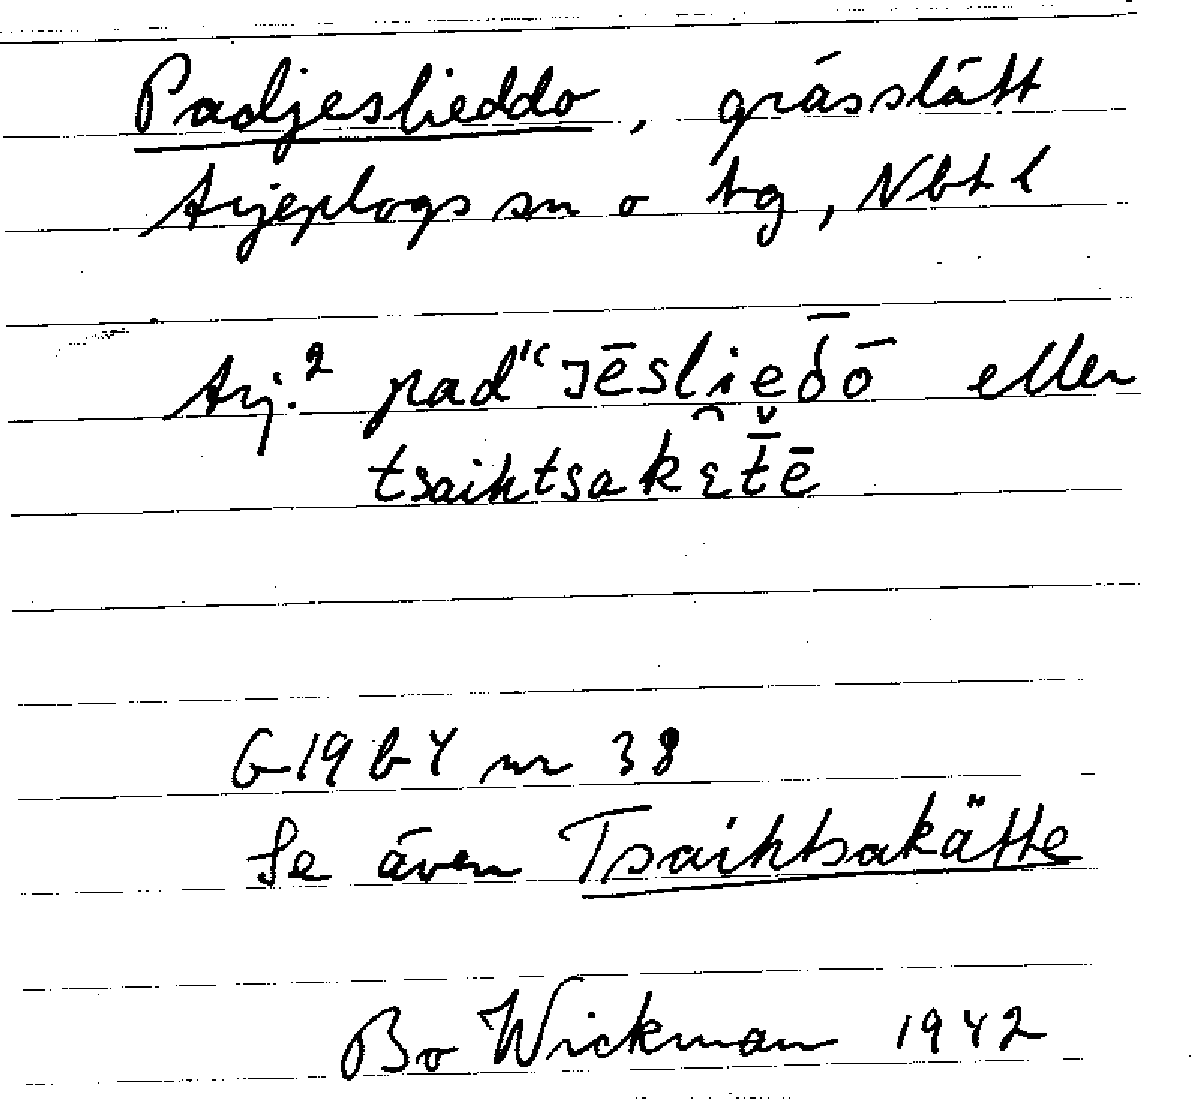 Padjeslieddo, grässlätt
Arjeplogs sn o tg, Nbt l
Arj.² pad"ᴊēslieδ̄ō eller
tsaihtsakε̑t̬̄ē
G 19 b 4 nr 38
Se även Tsaihtsakätte
Bo Wickman 1942